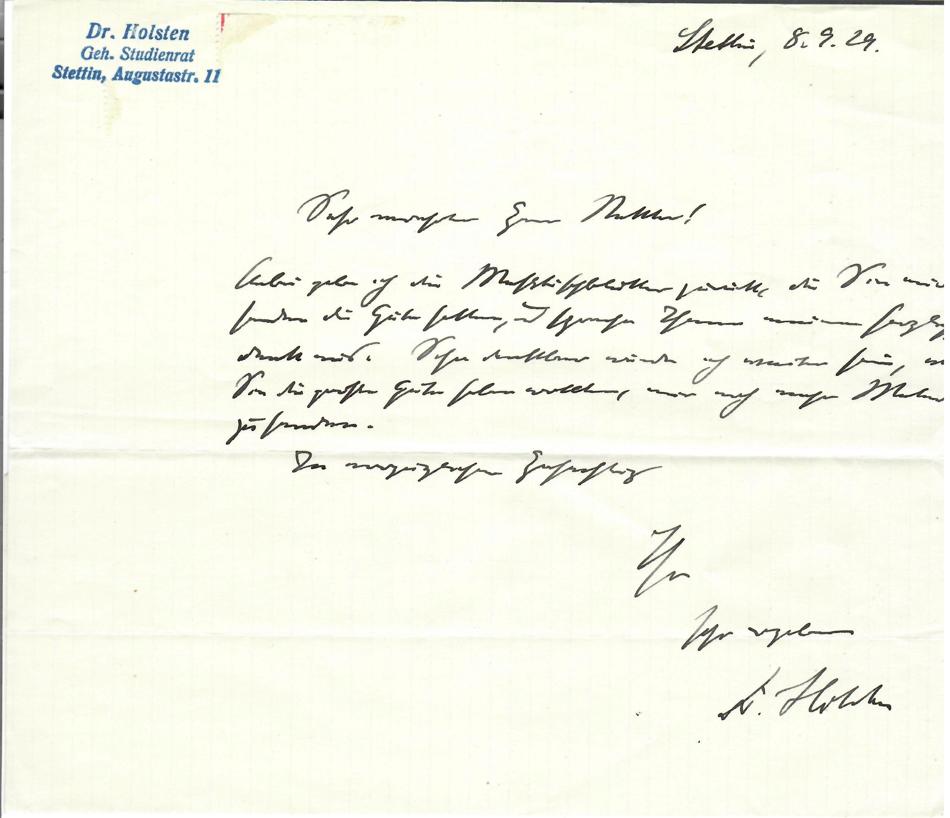 Dr. Holsten
Geh. Studienrat
Stettin, Augustastr. 11
Stettin, 8.9.29.
Sehr verehrter Herr
Anbei gebe ich die Meßtischblätter zurück, die Sie mir
senden die Güte hatten, u spreche Ihnen meinen herzl
dank aus. Sehr dankbar würde ich weiter sein, w
Sie die große Güte haben wollten, mir noch mehr
zu senden.
In vorzüglicher Hochachtung
Ihr
sehr ergebener
Dr. Holsten